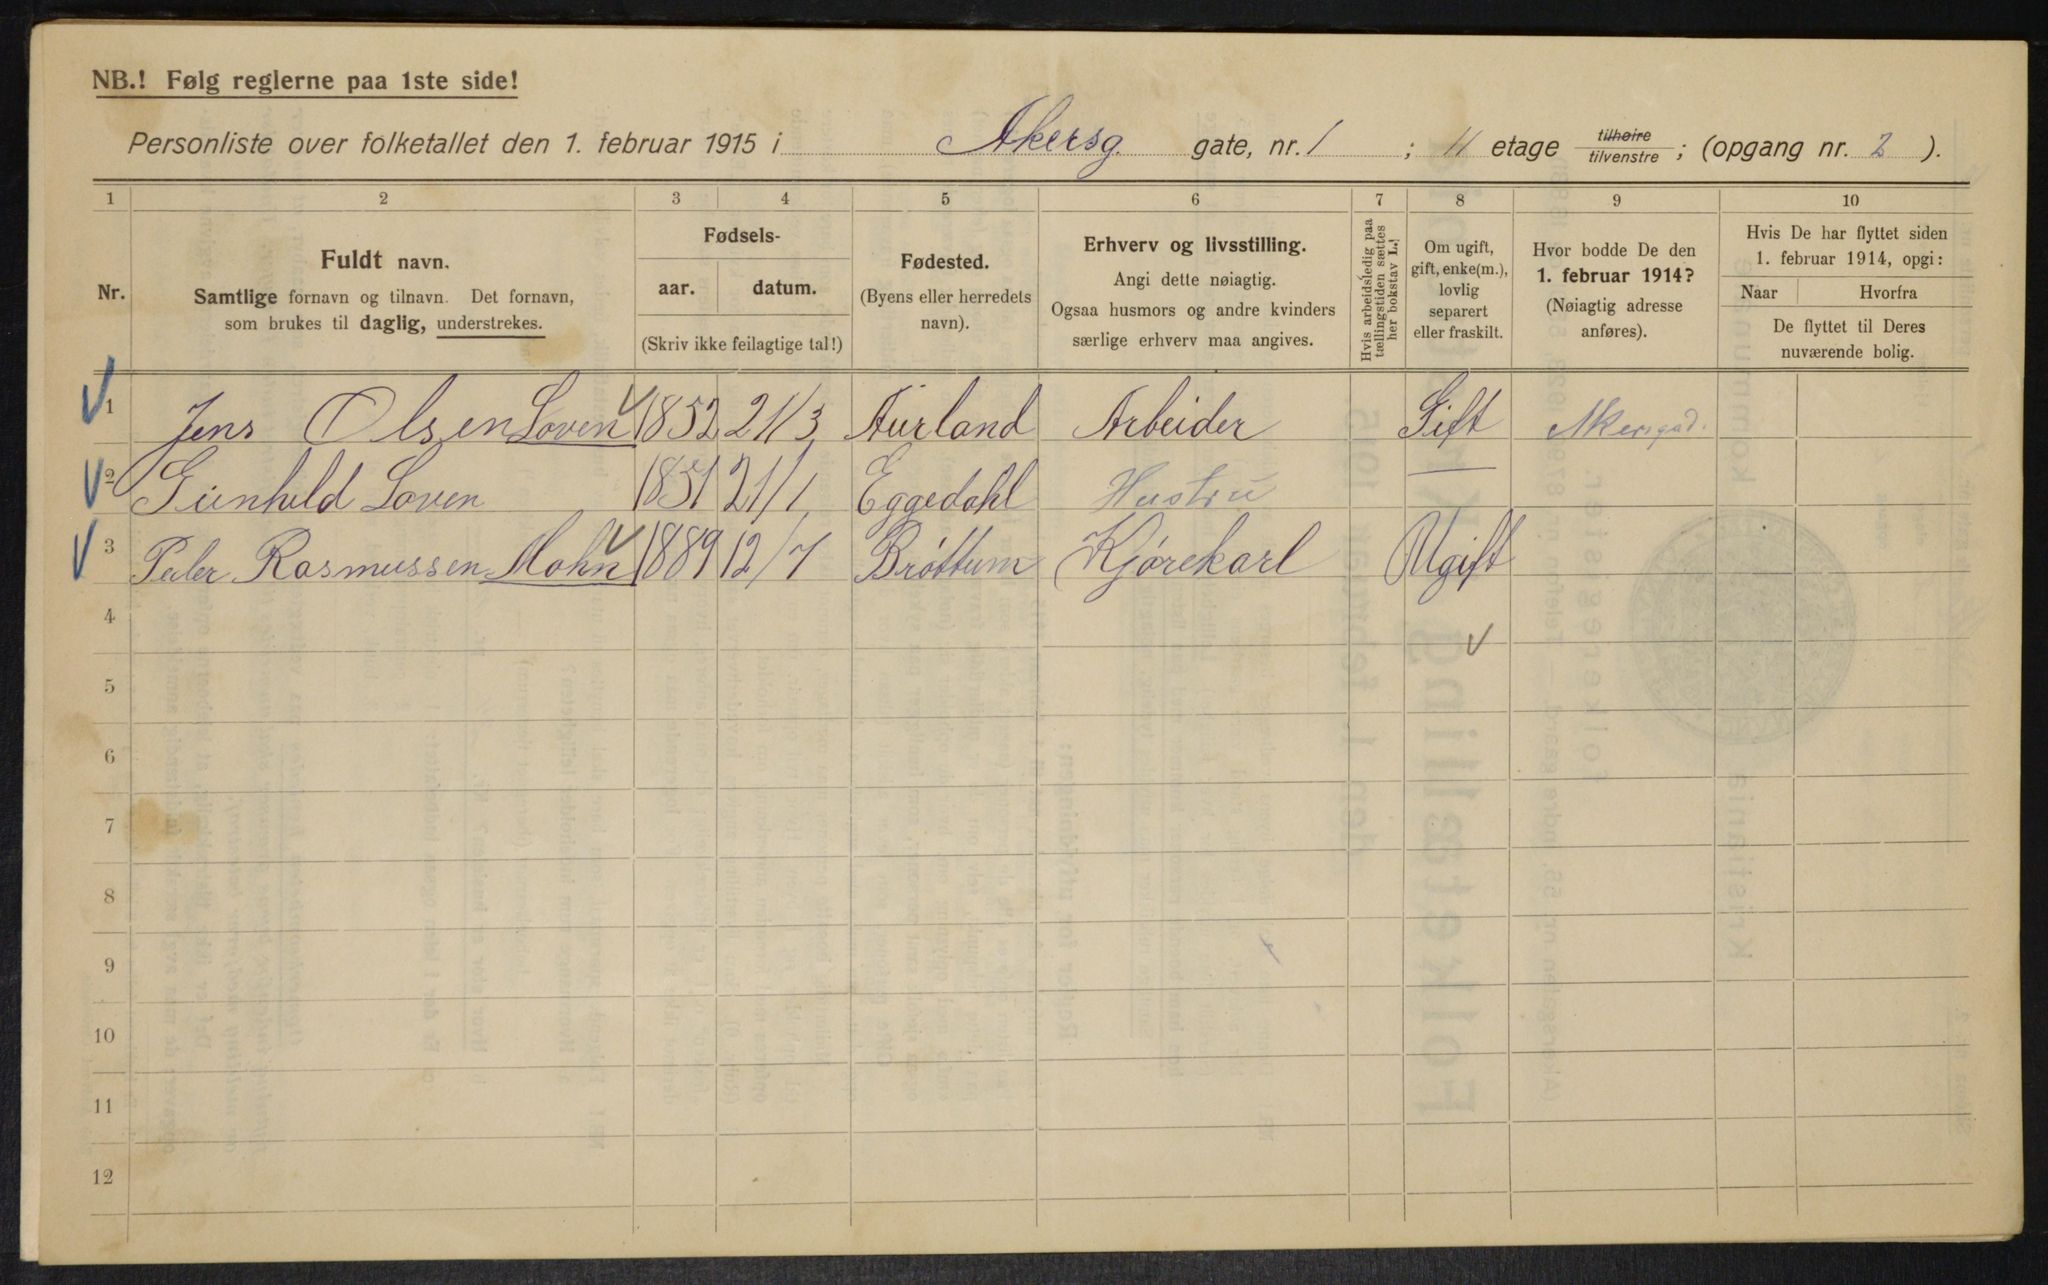 NB.! Følg reglerne paa 1ste side!
Personliste over folketallet den 1. februar 1915 i Akersg. gate, nr. 1 ; II etage tilhøire tilvenstre ; (opgang nr. 2 ).
1 2 3 4 5 6 7 8 9 10
Nr.
Fuldt navn.
Samtlige fornavn og tilnavn. Det fornavn,
som brukes til daglig, understrekes.
Fødsels-
aar. datum.
(Skriv ikke feilagtige tal!)
Fødested.
(Byens eller herredets
navn).
Erhverv og livsstilling.
Angi dette nøiagtig.
Ogsaa husmors og andre kvinders
særlige erhverv maa angives.
Hvis arbeidsledig paa
tællingstiden sættes
her bokstav L.!
Om ugift,
gift, enke(m.),
lovlig
separert
eller fraskilt.
Hvor bodde De den
1. februar 1914?
(Nøiagtig adresse
anføres).
Hvis De har flyttet siden
1. februar 1914, opgi:
Naar Hvorfra
De flyttet til Deres
nuværende bolig.
1 Jens Olsen Loven 1852 21/3 Aurland Arbeider Gift Akersgad.
2 Gunhild Loven 1851 21/1 Eggedahl Hustru
3 Peder Rasmussen Mohn 1889 12/7 Brøttum Kjørekarl Ugift
4
5
6
7
8
9
10
11
12